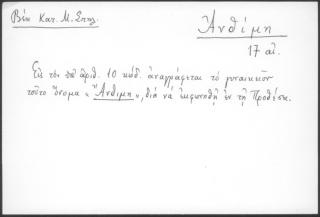 Βέη Κατ. Μ. Σπηλ.
Ἀνθίμη
17 αἰ.
Εἰς τὸν ὑπ' ἀριθ. 10 κώδ. ἀναγράφεται τὸ γυναικεῖον
τοῦτο ὄνομα "Ἄνθιμη", διὰ νὰ ἐκφωνηθῇ ἐν τῇ Προθέσει.